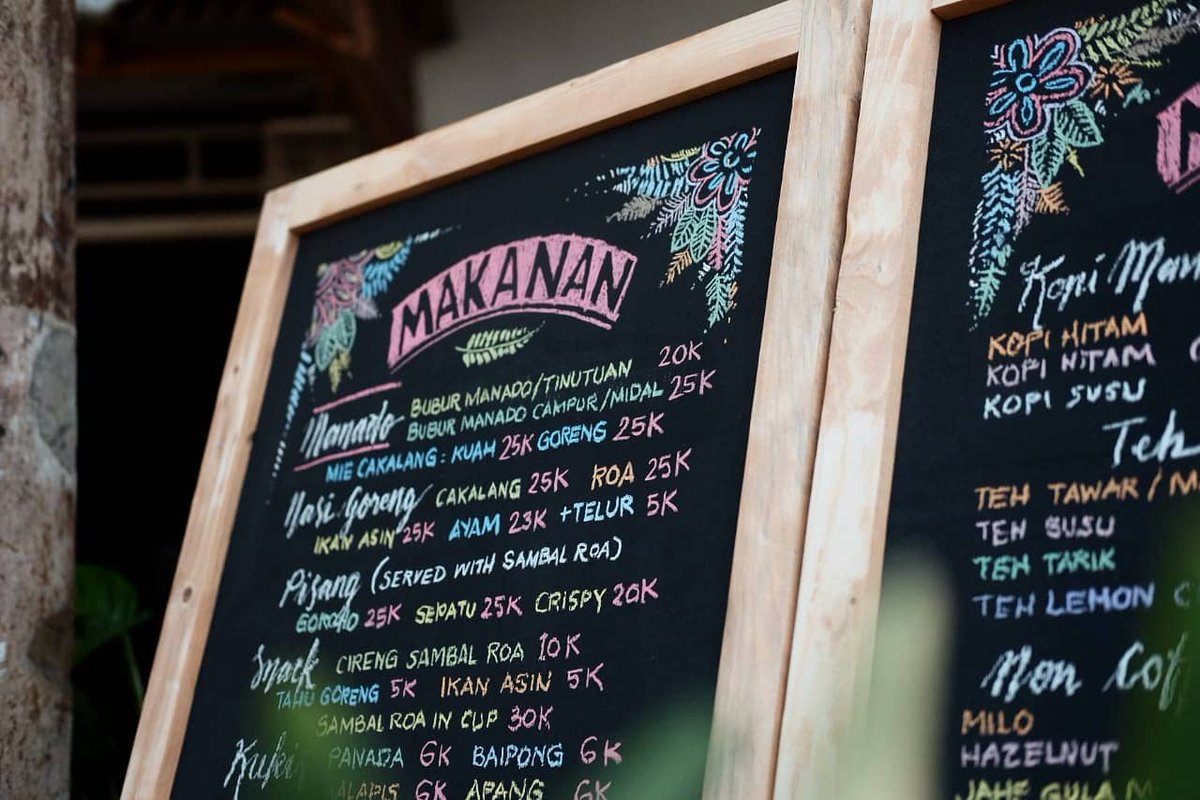 MAKANAN
Manado BUBUR MANADO/TINUTUAN 20K
BUBUR MANADO CAMPUR/MIDAL 25K
MIE CAKALANG: KUAH 25K GORENG 25K
Nasi Goreng CAKALANG 25K ROA 25K
IKAN ASIN 25K AYAM 23K +TELUR 5K
Pisang (SERVED WITH SAMBAL ROA)
GOROHO 25K SEPATU 25K CRISPY 20K
Snack CIRENG SAMBAL ROA 10K
TAHU GORENG 5K IKAN ASIN 5K
SAMBAL ROA IN CUP 30K
PANADA 6K BAIPONG 6K
APANG 6K
Kopi
KOPI HITAM
KOPI HITAM
KOPI SUSU
Teh
TEH TAWAR /
TEH SUSU
TEH TARIK
TEH LEMON
Non
MILO
HAZELNUT
JAHE GULA